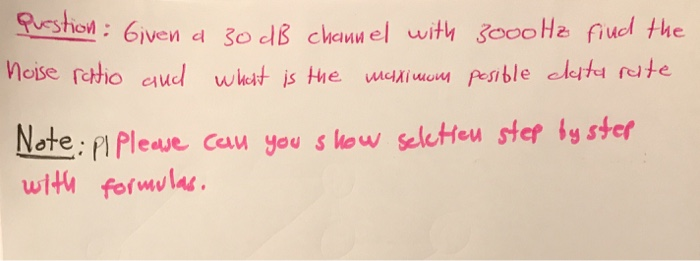 Question: Given a 30 dB channel with 3000Hz find the
Noise ratio and what is the maximum posible data rate
Note: Pl Please can you show solution step by step
with formulas.